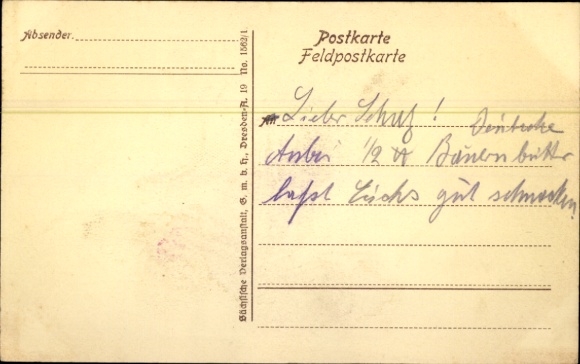 Absender.
Postkarte
Feldpostkarte
Sächsische Verlagsanstalt, G. m. b. H., Dresden-A. 19 No. 1562/1
An
Lieber Schatz!
Deutsche
Anbei 1/2 ℔ Bauernbutter
laßt Euchs gut schmecken!